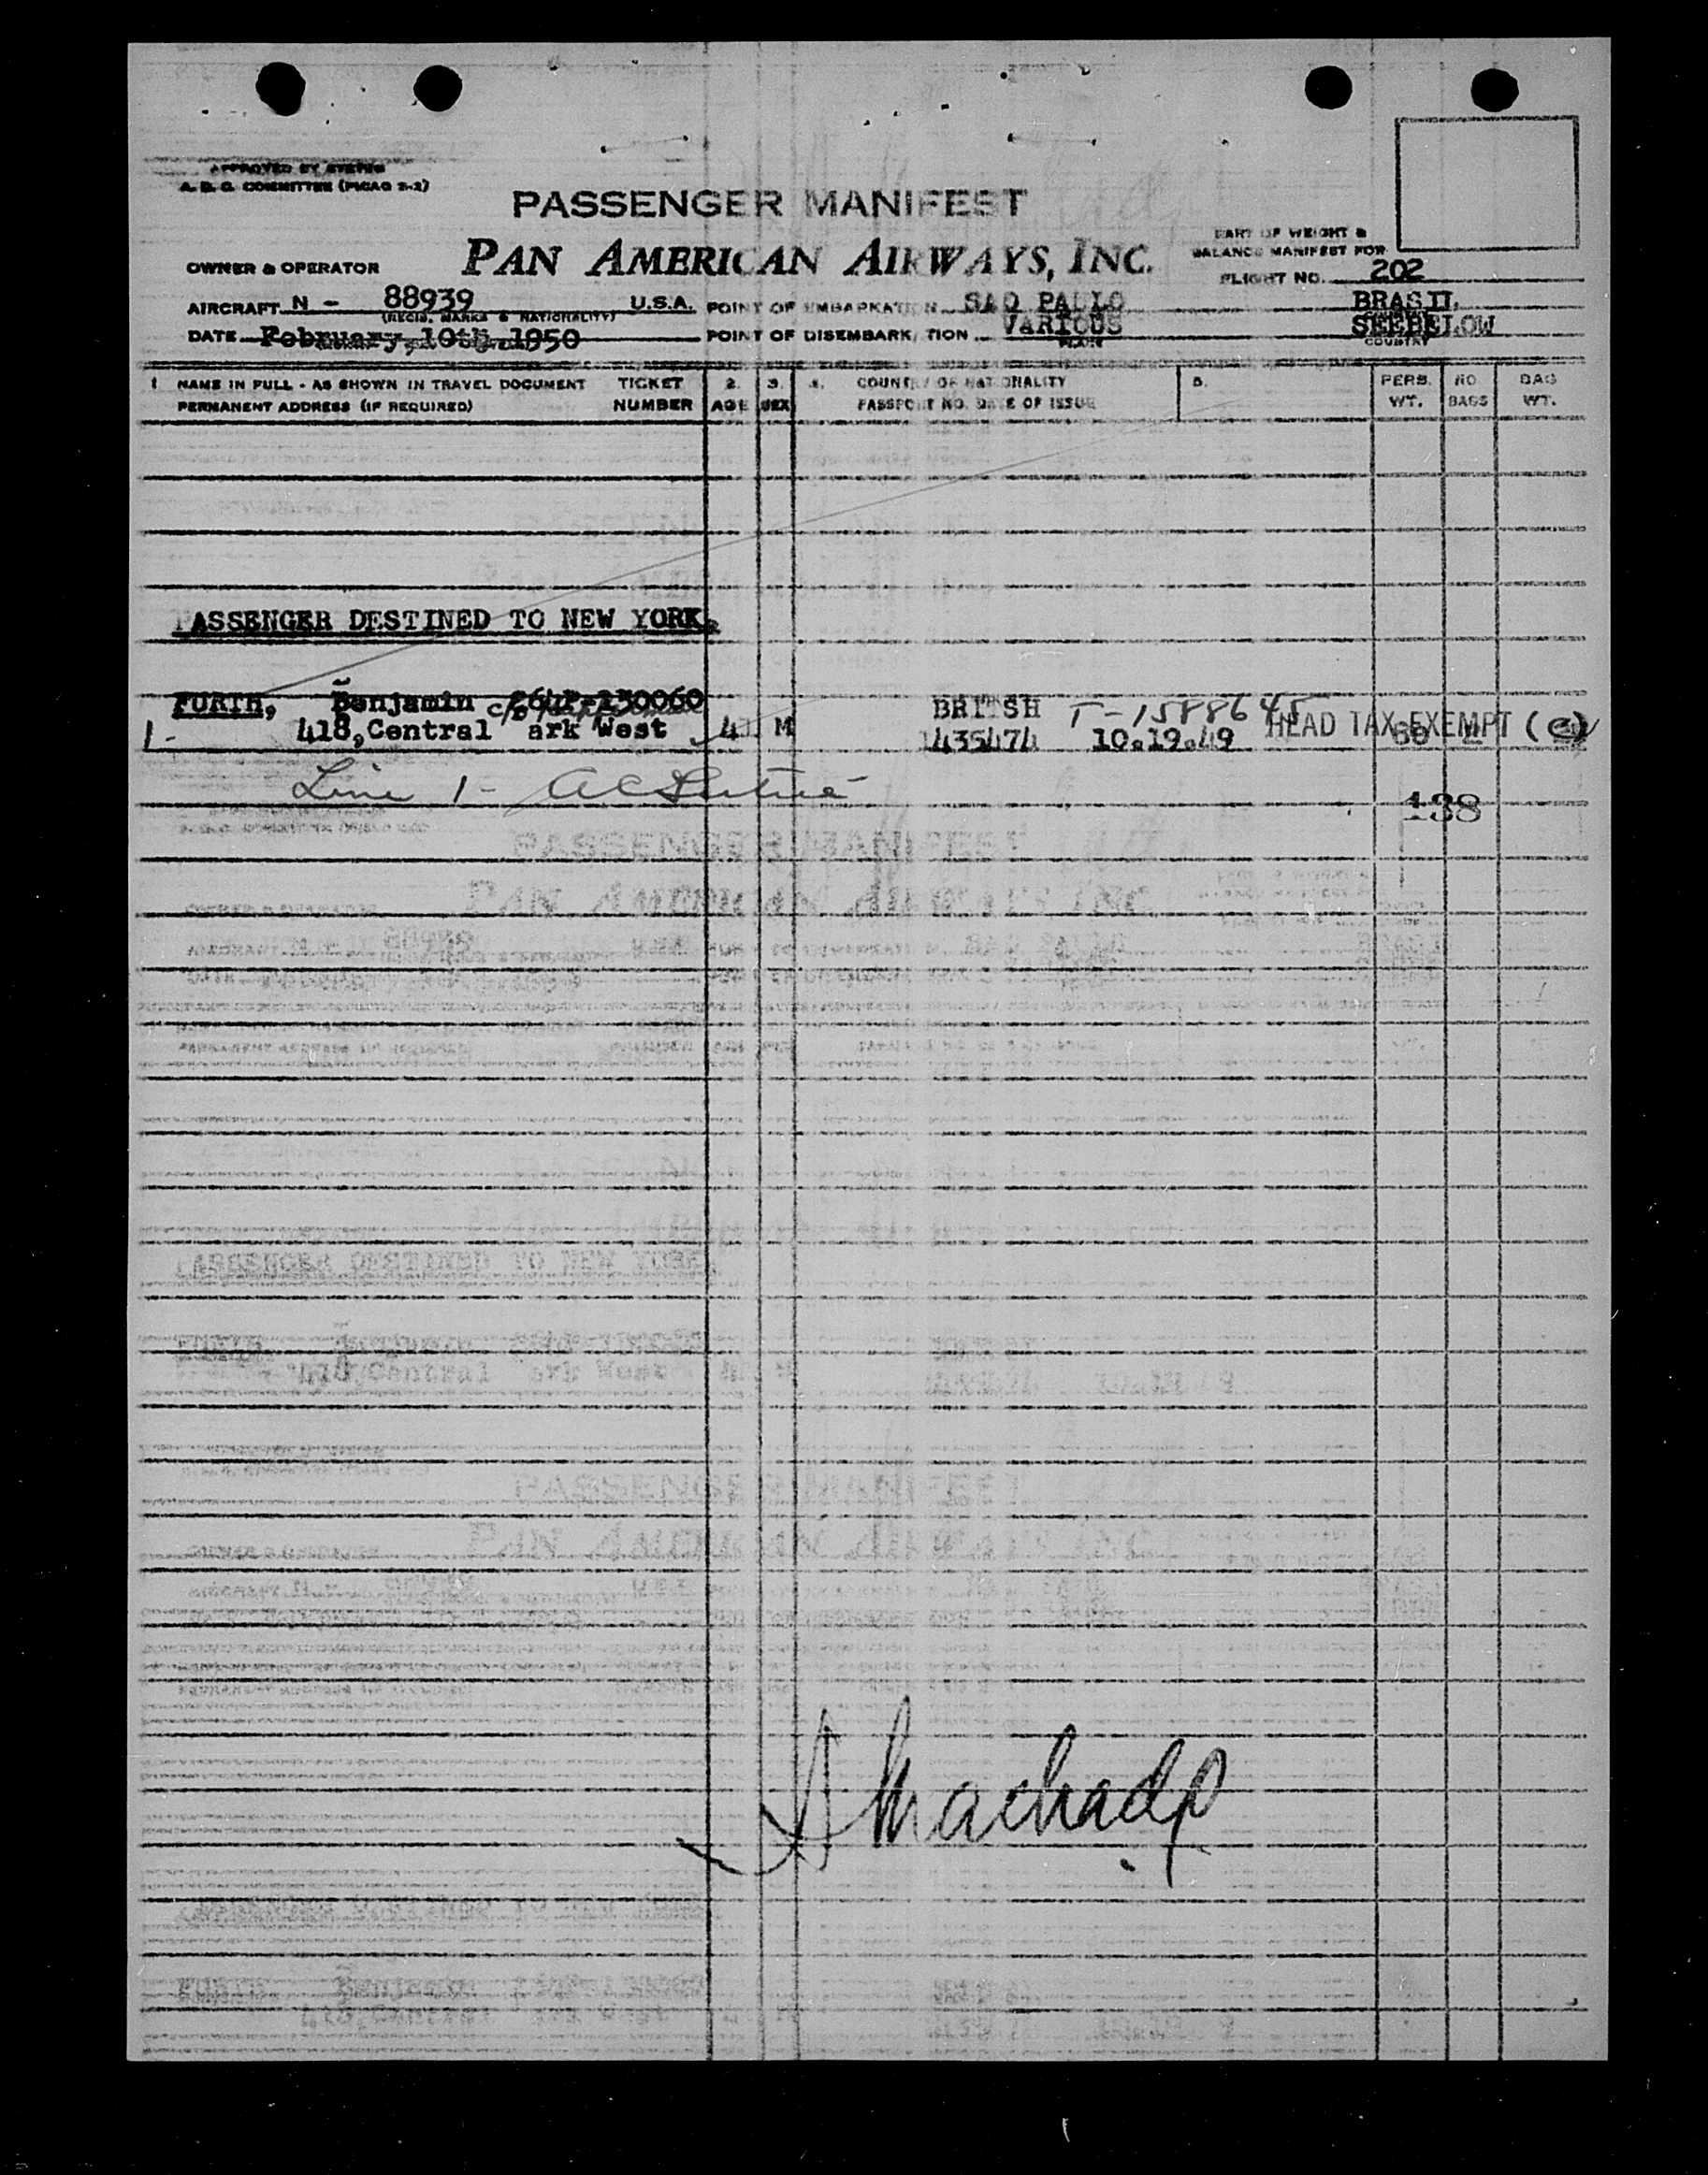 APPROVED BY
A. D. C. COMMITTEE (PICAO 2-2)
PASSENGER MANIFEST
OWNER & OPERATOR PAN AMERICAN AIRWAYS, INC.
PART OF WEIGHT &
BALANCE MANIFEST FOR
FLIGHT NO. 202
AIRCRAFT N - 88939 U.S.A. POINT OF EMBARKATION SAO PAULO BRASIL
(REGIS. MARKS & NATIONALITY)
DATE February, 10th, 1950 POINT OF DISEMBARKATION VARIOUS SEEBELOW
PLACE COUNTRY
1 NAME IN FULL - AS SHOWN IN TRAVEL DOCUMENT TICKET 2. 3. 4. COUNTRY OF NATIONALITY 5. PERS. NO. BAG
PERMANENT ADDRESS (IF REQUIRED) NUMBER AGE SEX PASSPORT NO. DATE OF ISSUE WT. BAGS WT.
PASSENGER DESTINED TO NEW YORK.
FORTH, Benjamin BRITISH T-1588645
1- 418, Central ark West M 1435474 10.19.49 HEAD TAX EXEMPT (e)
Line 1-
138
A Machado